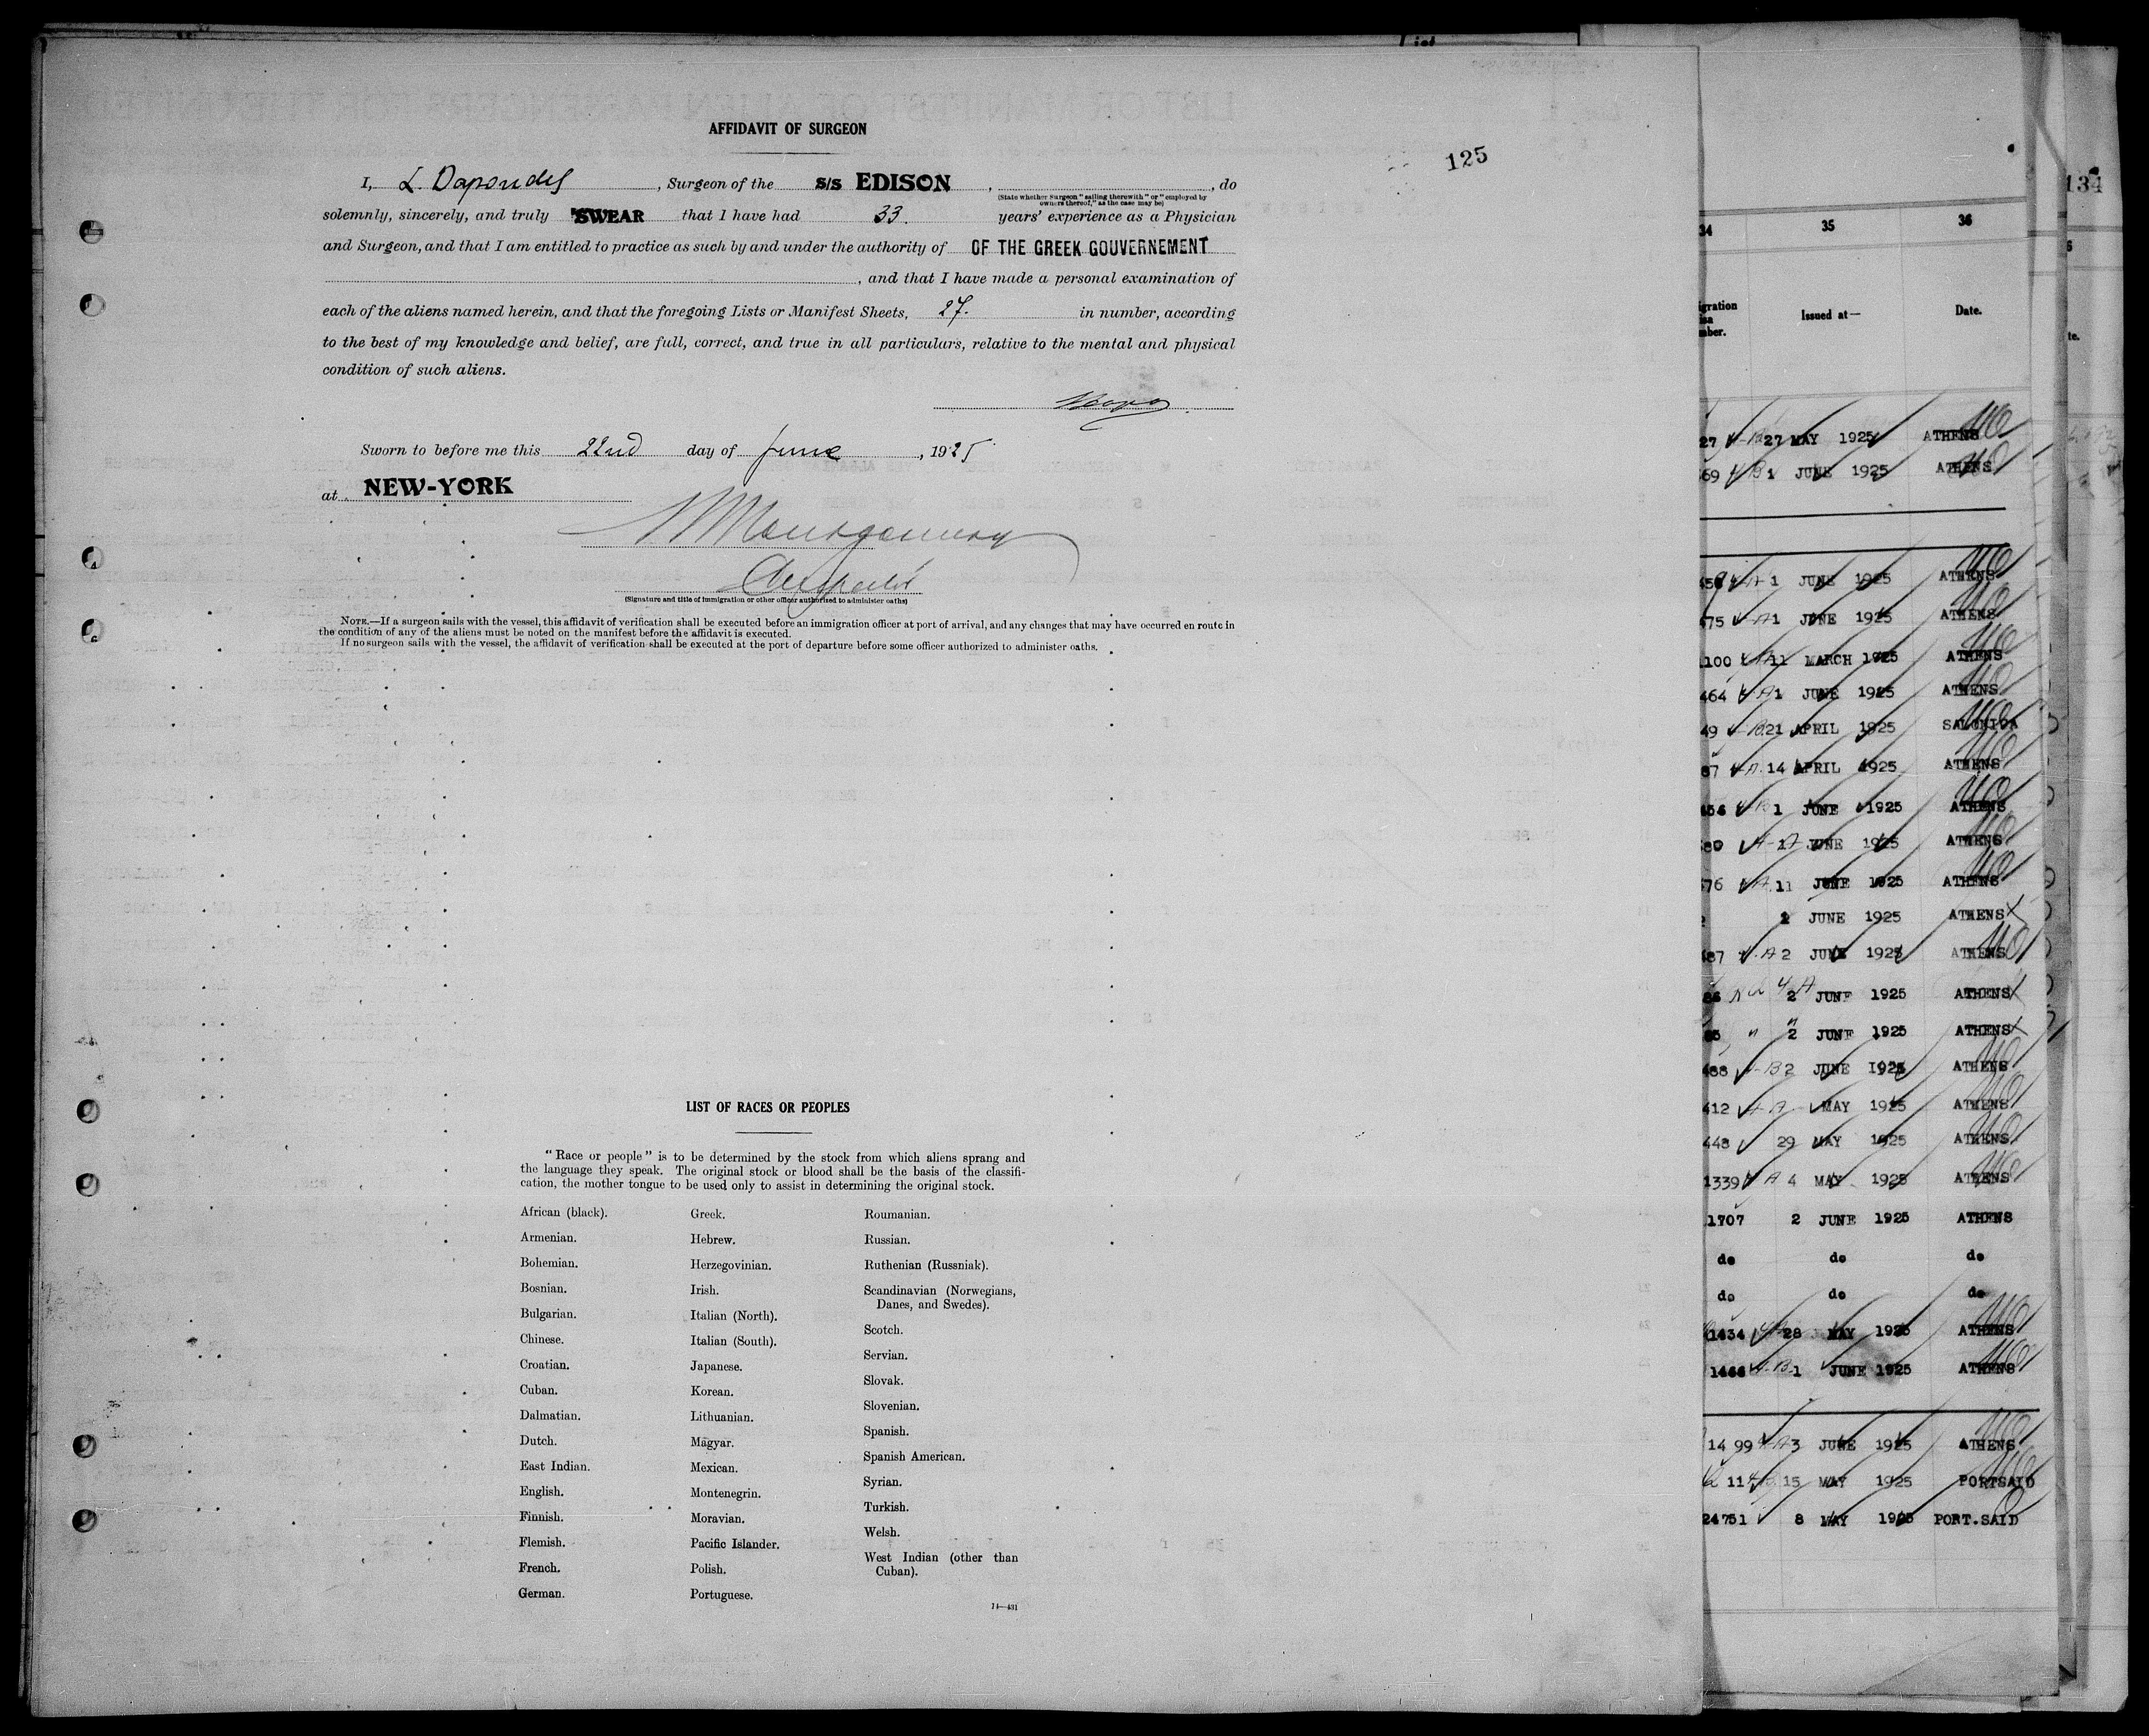 AFFIDAVIT OF SURGEON
125
I, L. Dapondes, Surgeon of the S/S EDISON, , do
(State whether Surgeon "sailing therewith" or "employed by
owners thereof," as the case may be)
solemnly, sincerely, and truly SWEAR that I have had 33. years' experience as a Physician
and Surgeon, and that I am entitled to practice as such by and under the authority of OF THE GREEK GOUVERNEMENT
, and that I have made a personal examination of
each of the aliens named herein, and that the foregoing Lists or Manifest Sheets, 27. in number, according
to the best of my knowledge and belief, are full, correct, and true in all particulars, relative to the mental and physical
condition of such aliens.
Sworn to before me this 22nd day of June, 1925
at NEW-YORK
Montgomery
(Signature and title of immigration or other officer authorized to administer oaths)
NOTE.—If a surgeon sails with the vessel, this affidavit of verification shall be executed before an immigration officer at port of arrival, and any changes that may have occurred en route in
the condition of any of the aliens must be noted on the manifest before the affidavit is executed.
If no surgeon sails with the vessel, the affidavit of verification shall be executed at the port of departure before some officer authorized to administer oaths.
LIST OF RACES OR PEOPLES
"Race or people" is to be determined by the stock from which aliens sprang and
the language they speak. The original stock or blood shall be the basis of the classifi-
cation, the mother tongue to be used only to assist in determining the original stock.
African (black).
Armenian.
Bohemian.
Bosnian.
Bulgarian.
Chinese.
Croatian.
Cuban.
Dalmatian.
Dutch.
East Indian.
English.
Finnish.
Flemish.
French.
German.
Greek.
Hebrew.
Herzegovinian.
Irish.
Italian (North).
Italian (South).
Japanese.
Korean.
Lithuanian.
Magyar.
Mexican.
Montenegrin.
Moravian.
Pacific Islander.
Polish.
Portuguese.
Roumanian.
Russian.
Ruthenian (Russniak).
Scandinavian (Norwegians,
Danes, and Swedes).
Scotch.
Servian.
Slovak.
Slovenian.
Spanish.
Spanish American.
Syrian.
Turkish.
Welsh.
West Indian (other than
Cuban).
14—431
34 35 36
Issued at— Date.
27 27 MAY 1925 ATHENS
69 1 JUNE 1925 ATHENS
1 JUNE 1925 ATHENS
475 1 JUNE 1925 ATHENS
1100 11 MARCH 1925 ATHENS
464 1 JUNE 1925 ATHENS
49 21 APRIL 1925 SALONICA
87 14 APRIL 1925 ATHENS
454 1 JUNE 1925 ATHENS
80 1 JUNE 1925 ATHENS
76 11 JUNE 1925 ATHENS
2 JUNE 1925 ATHENS
487 2 JUNE 1925 ATHENS
86 2 JUNE 1925 ATHENS
85 2 JUNE 1925 ATHENS
488 2 JUNE 1925 ATHENS
412 MAY 1925 ATHENS
448 29 MAY 1925 ATHENS
1339 4 MAY 1925 ATHENS
1707 2 JUNE 1925 ATHENS
do do do
do do do
1434 28 MAY 1925 ATHENS
1466 1 JUNE 1925 ATHENS
14 99 3 JUNE 1925 ATHENS
114 15 MAY 1925 PORTSAID
24751 8 MAY 1925 PORT.SAID
134